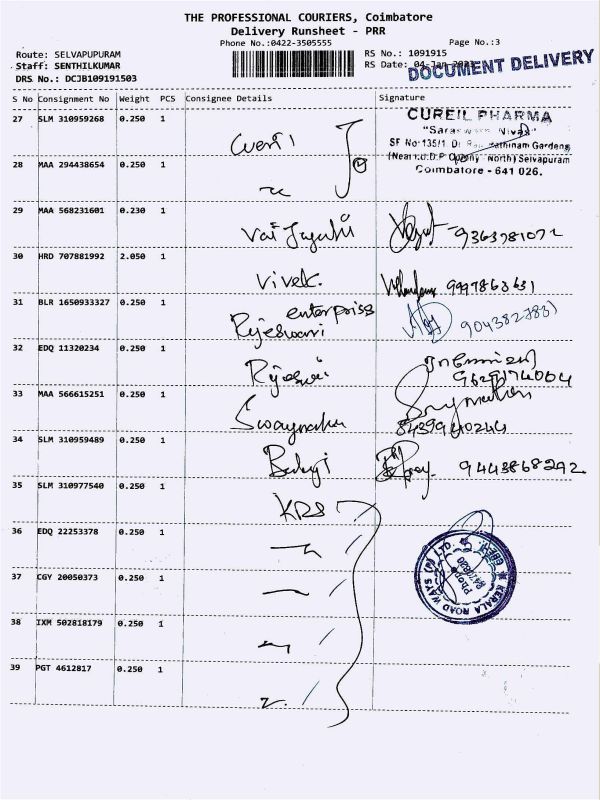 THE PROFESSIONAL COURIERS, Coimbatore
Delivery Runsheet - PRR
Phone No.:0422-3505555
Page No.:3
Route: SELVAPUPURAM
RS No.: 1091915
Staff: SENTHILKUMAR
RS Date: 04-Jan-2023
DRS No.: DCJB109191503
DOCUMENT DELIVERY
S No Consignment No Weight PCS Consignee Details Signature
27 SLM 310959268 0.250 1
CUREIL PHARMA
"Saraswathi Nivas"
SF No 135/1 Dr Rajarathinam Gardens
(Near T.U.D.P Colony North) Selvapuram
Coimbatore - 641 026.
28 MAA 294438654 0.250 1
29 MAA 568231601 0.230 1
30 HRD 707881992 2.050 1 Vivek.
31 BLR 1650933327 0.250 1 Rajeswari enterpriss
32 EDQ 11320234 0.250 1
33 MAA 566615251 0.250 1 8439940244
34 SLM 310959489 0.250 1 Balaji 9443868292
35 SLM 310977540 0.250 1 KRS
36 EDQ 22253378 0.250 1
KERALA ROAD WAYS (P) LTD.
37 CGY 20050373 0.250 1
38 IXM 502818179 0.250 1
39 PGT 4612817 0.250 1